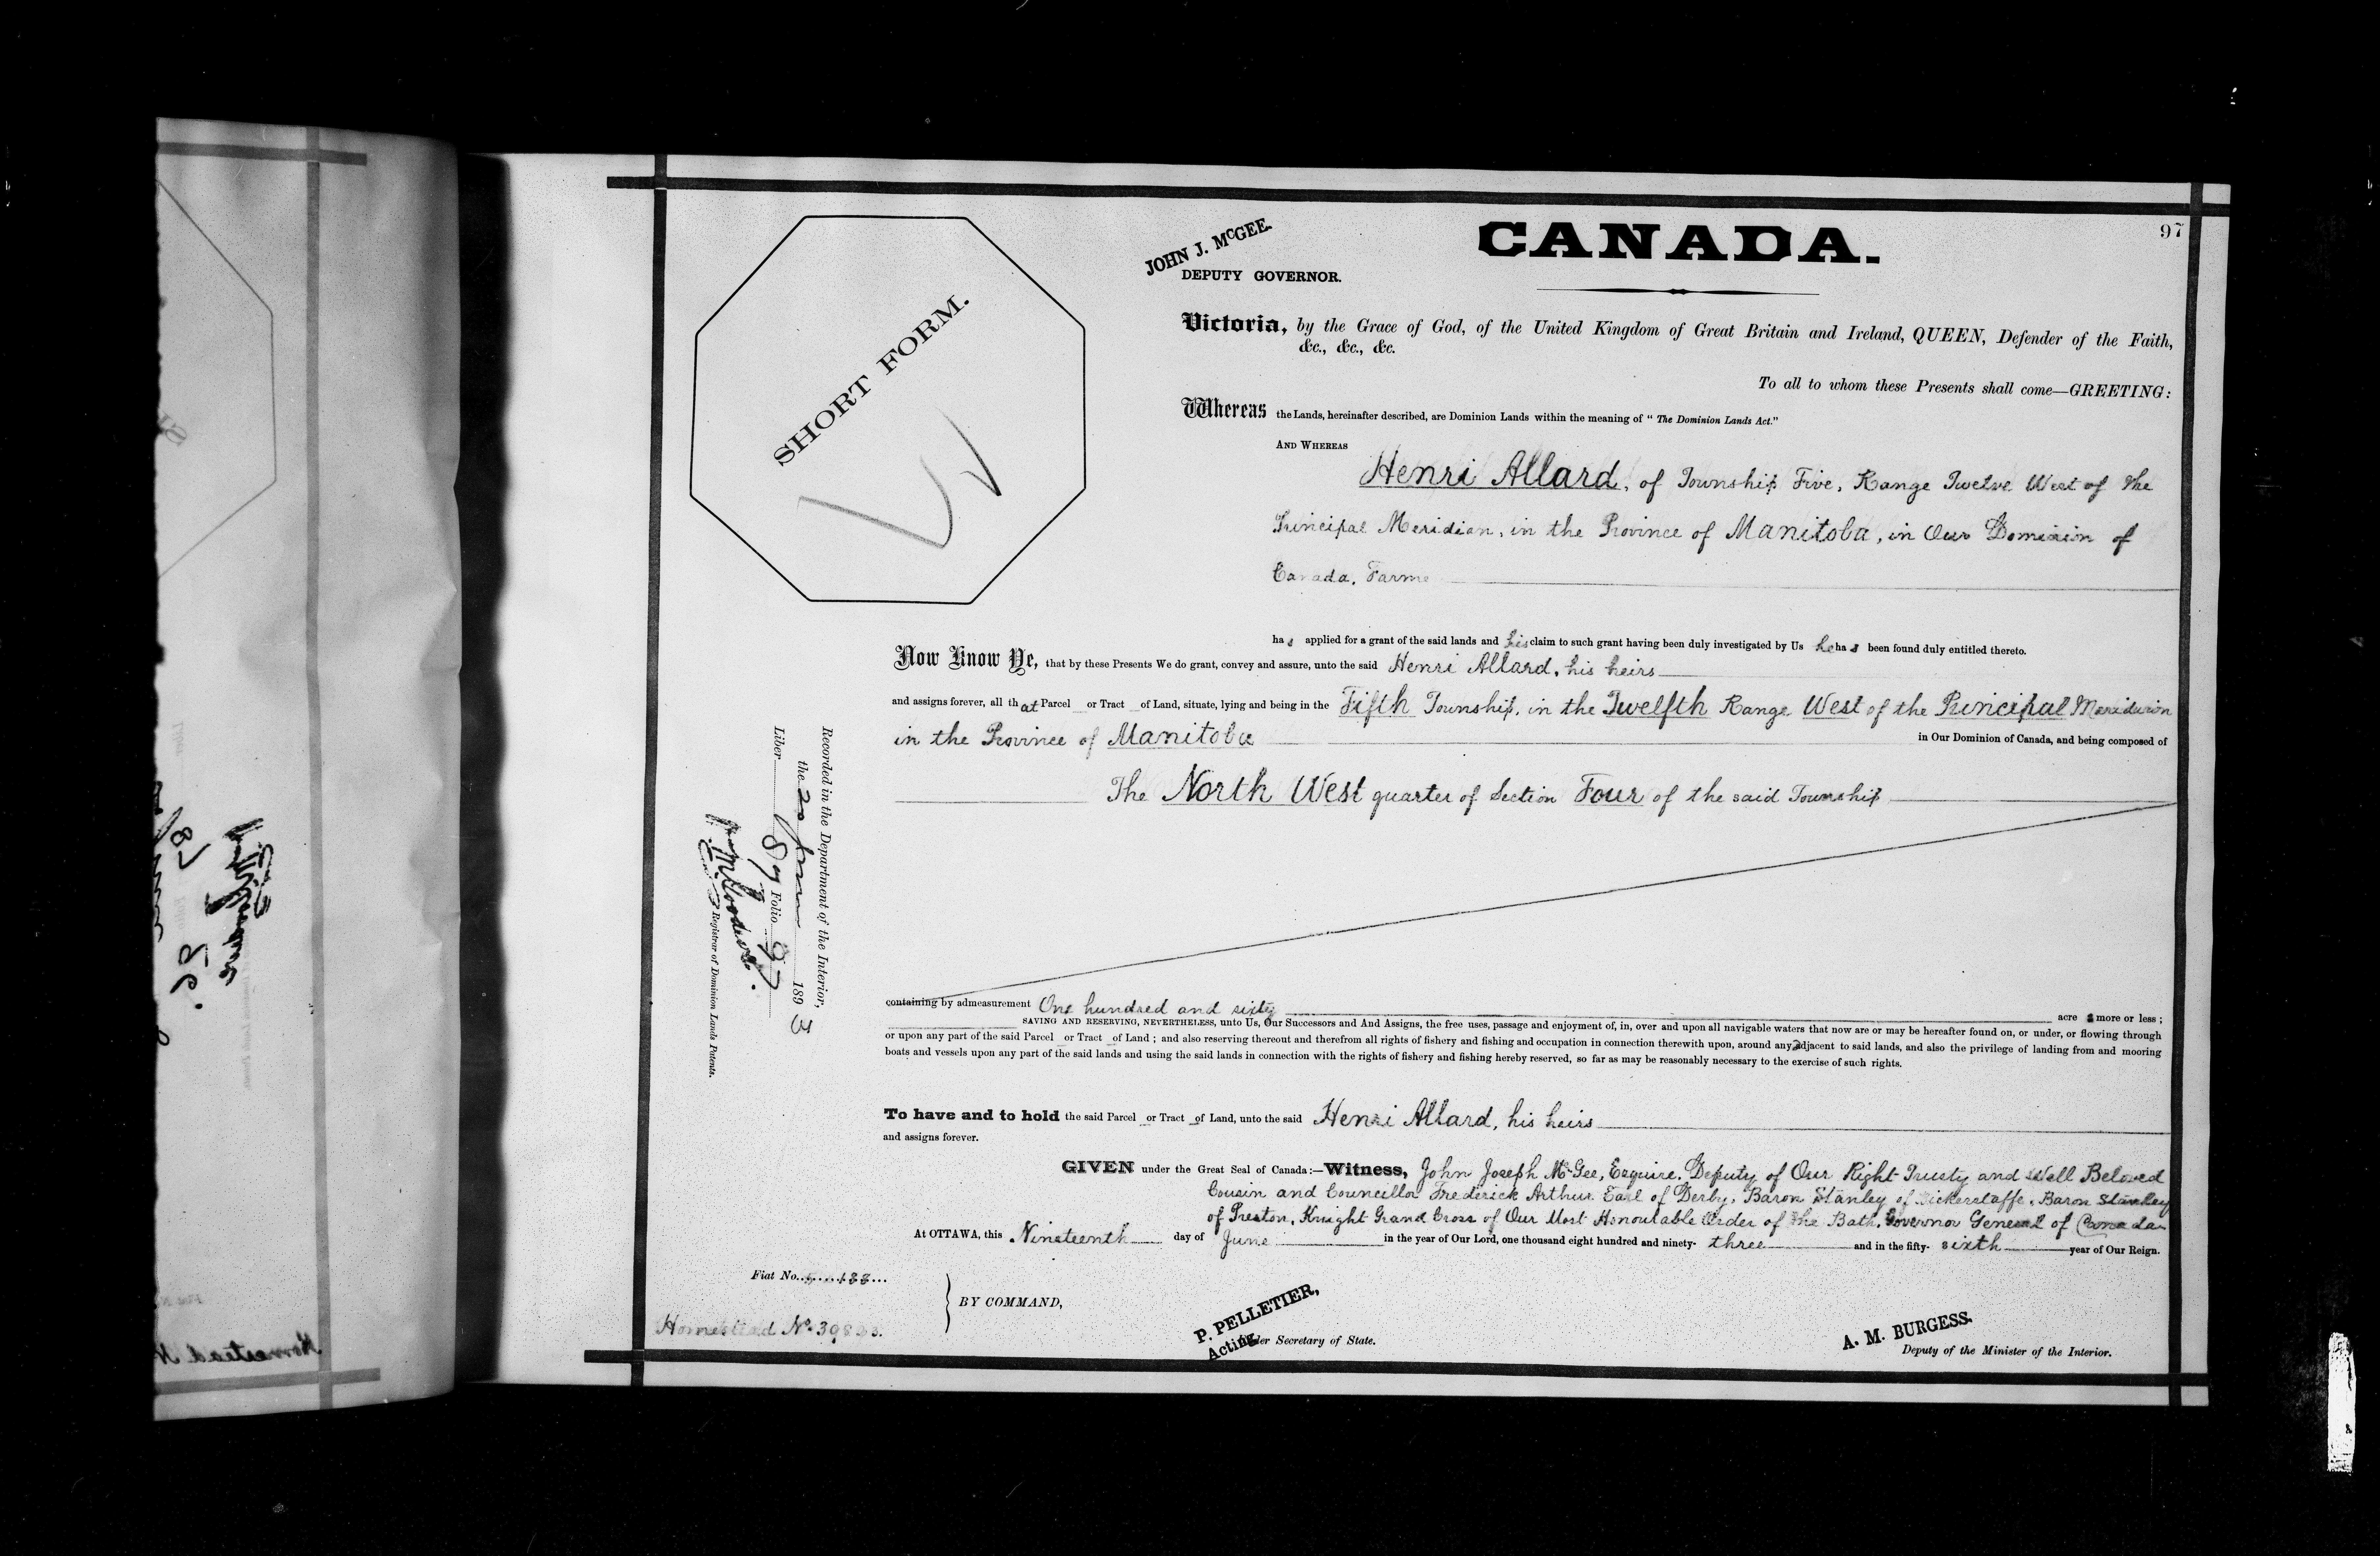 97
JOHN J. McGEE.
DEPUTY GOVERNOR.
CANADA.
SHORT FORM.
Victoria, by the Grace of God, of the United Kingdom of Great Britain and Ireland, QUEEN, Defender of the Faith,
&c., &c., &c.
To all to whom these Presents shall come—GREETING:
Whereas the Lands, hereinafter described, are Dominion Lands within the meaning of " The Dominion Lands Act."
AND WHEREAS
Henri Allard, of Township Five, Range Twelve West of the
Principal Meridian, in the Province of Manitoba, in Our Dominion of
Canada, Farme
has applied for a grant of the said lands and his claim to such grant having been duly investigated by Us he has been found duly entitled thereto.
Now Know Ye, that by these Presents We do grant, convey and assure, unto the said Henri Allard, his heirs
and assigns forever, all that Parcel or Tract of Land, situate, lying and being in the Fifth Township, in the Twelfth Range West of the Principal Meridian
in the Province of Manitoba in Our Dominion of Canada, and being composed of
The North West quarter of Section Four of the said Township
containing by admeasurement One hundred and sixty acres more or less ;
SAVING AND RESERVING, NEVERTHELESS, unto Us, Our Successors and And Assigns, the free uses, passage and enjoyment of, in, over and upon all navigable waters that now are or may be hereafter found on, or under, or flowing through
or upon any part of the said Parcel or Tract of Land ; and also reserving thereout and therefrom all rights of fishery and fishing and occupation in connection therewith upon, around any adjacent to said lands, and also the privilege of landing from and mooring
boats and vessels upon any part of the said lands and using the said lands in connection with the rights of fishery and fishing hereby reserved, so far as may be reasonably necessary to the exercise of such rights.
To have and to hold the said Parcel or Tract of Land, unto the said Henri Allard, his heirs
and assigns forever.
GIVEN under the Great Seal of Canada:—Witness, John Joseph McGee, Esquire, Deputy of Our Right Trusty and Well Beloved
Cousin and Councillor Frederick Arthur Earl of Derby, Baron Stanley of Bickerstaffe, Baron Stanley
of Preston, Knight Grand Cross of Our Most Honourable Order of the Bath, Governor General of Canada
At OTTAWA, this Nineteenth day of June in the year of Our Lord, one thousand eight hundred and ninety- three and in the fifty- sixth year of Our Reign.
Fiat No.
BY COMMAND,
Homestead No.
P. PELLETIER,
Acting Under Secretary of State.
A. M. BURGESS.
Deputy of the Minister of the Interior.
Recorded in the Department of the Interior,
the 20 June 1893
Liber 87 Folio 97
Registrar of Dominion Lands Patents.